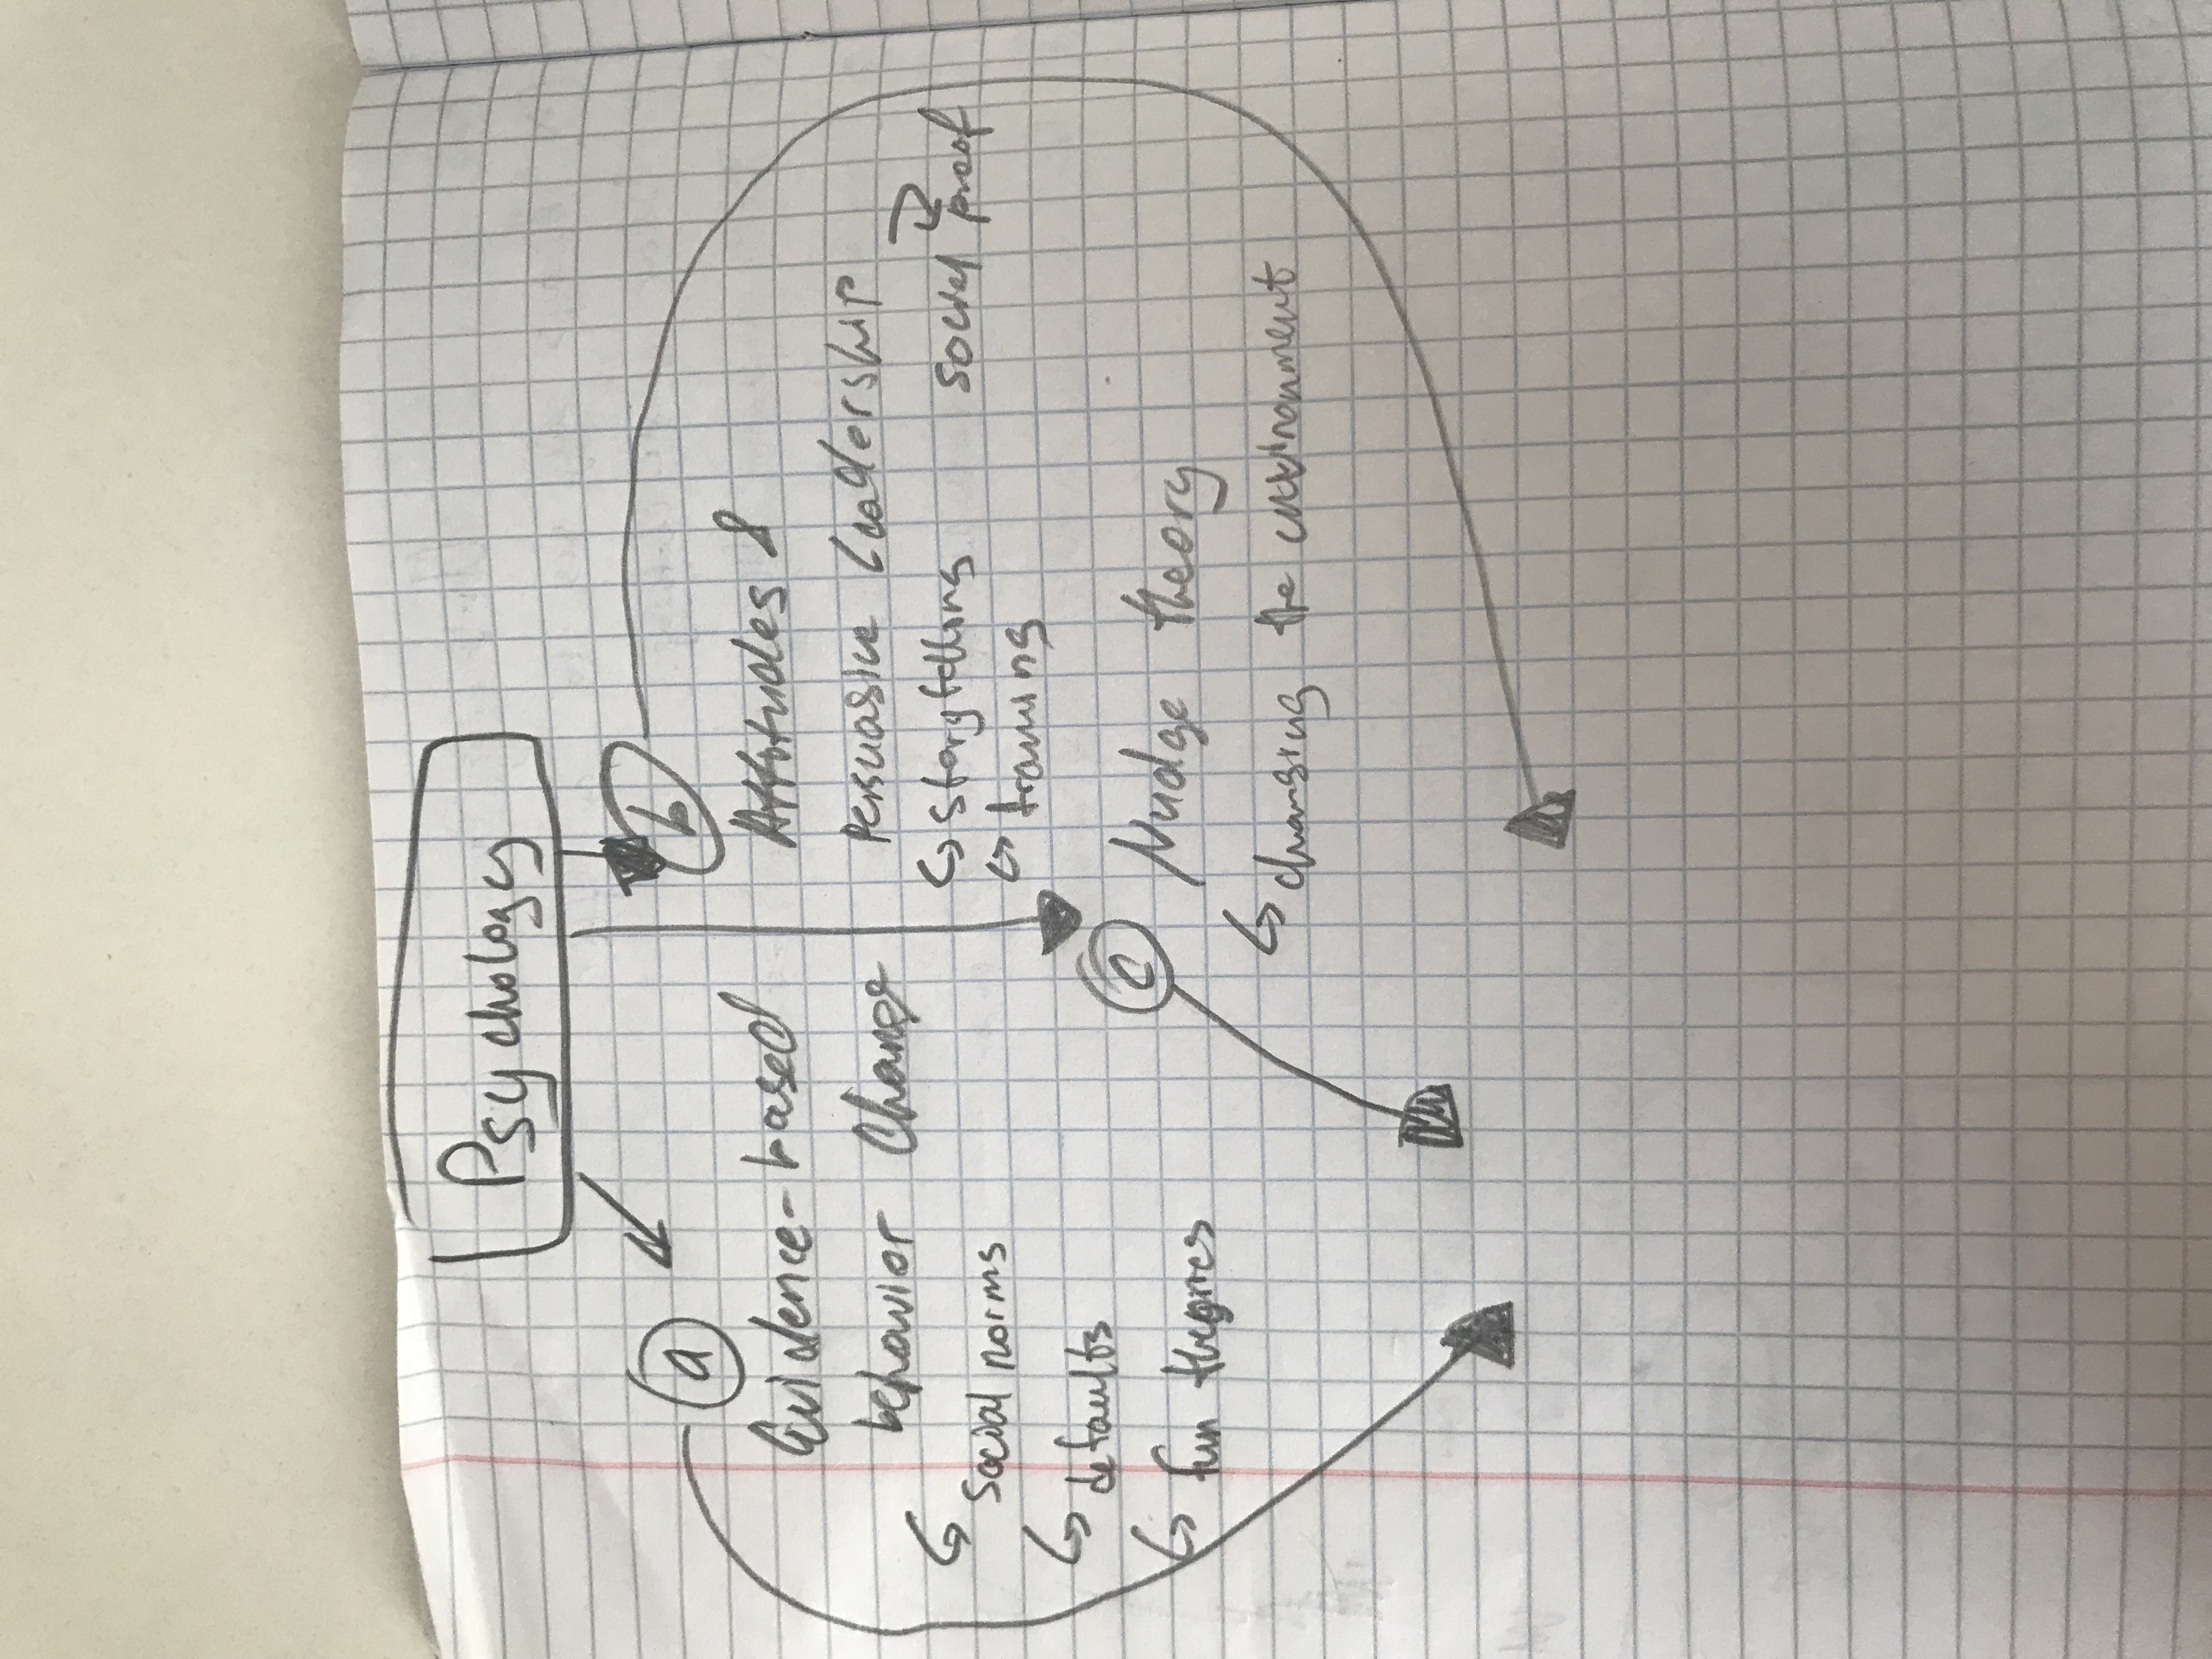 Psychology
a
Evidence-based
behavior change
social norms
defaults
fun theories
b
Attitudes &
Persuasive leadership
storytelling
social proof
framing
c
Nudge theory
changing the environment